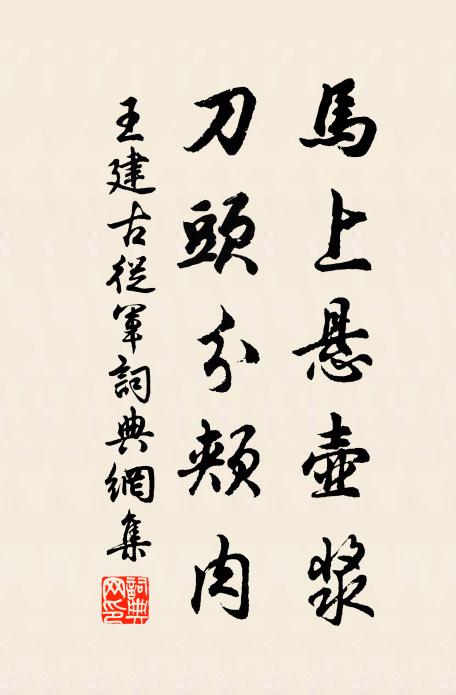 馬上悬壺漿
刀頭分頰肉
王建古從軍詞典網集
詞典網印